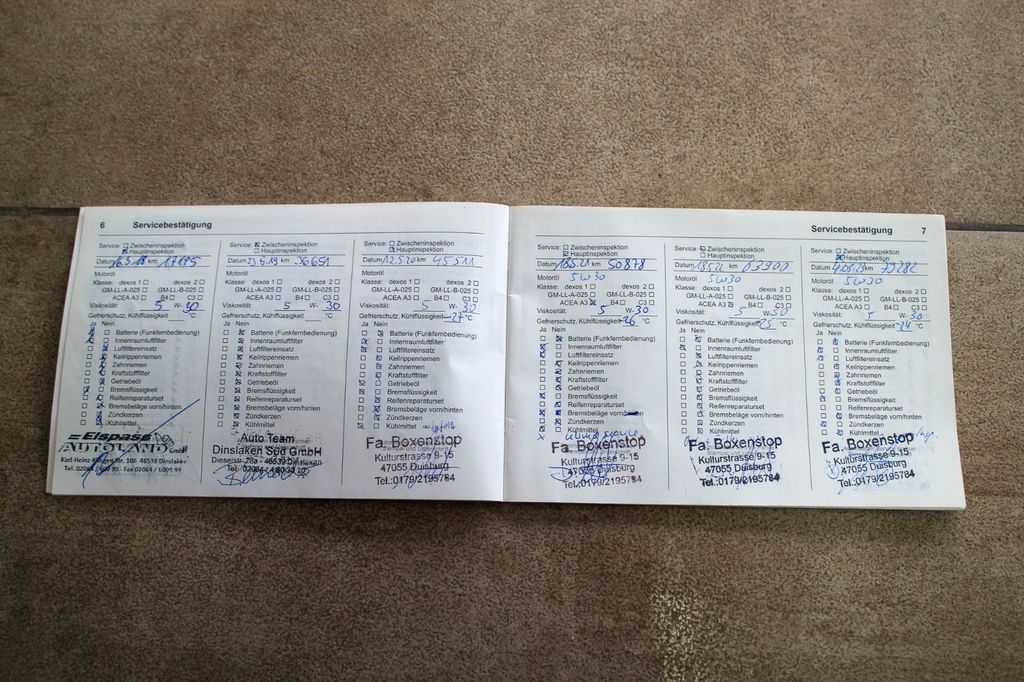 6 Servicebestätigung
Service: Zwischeninspektion
Hauptinspektion
Datum km 17195
Motoröl
Klasse: dexos 1 dexos 2
GM-LL-A-025 GM-LL-B-025
ACEA A3 B4 C3
Viskosität: 5 W- 30
Gefrierschutz, Kühlflüssigkeit °C
Ja Nein
Batterie (Funkfernbedienung)
Innenraumluftfilter
Luftfiltereinsatz
Keilrippenriemen
Zahnriemen
Kraftstofffilter
Getriebeöl
Bremsflüssigkeit
Reifenreparaturset
Bremsbeläge vorn/hinten
Zündkerzen
Kühlmittel
Elspass
AUTOLAND GmbH
Service: Zwischeninspektion
Hauptinspektion
Datum 23.5.19 km 36651
Motoröl
Klasse: dexos 1 dexos 2
GM-LL-A-025 GM-LL-B-025
ACEA A3 B4 C3
Viskosität: 5 W- 30
Gefrierschutz, Kühlflüssigkeit °C
Ja Nein
Batterie (Funkfernbedienung)
Innenraumluftfilter
Luftfiltereinsatz
Keilrippenriemen
Zahnriemen
Kraftstofffilter
Getriebeöl
Bremsflüssigkeit
Reifenreparaturset
Bremsbeläge vorn/hinten
Zündkerzen
Kühlmittel
Auto Team
Dinslaken Süd GmbH
Service: Zwischeninspektion
Hauptinspektion
Datum 12.5.20 km 45511
Motoröl
Klasse: dexos 1 dexos 2
GM-LL-A-025 GM-LL-B-025
ACEA A3 B4 C3
Viskosität: 5 W- 30
Gefrierschutz, Kühlflüssigkeit -27 °C
Ja Nein
Batterie (Funkfernbedienung)
Innenraumluftfilter
Luftfiltereinsatz
Keilrippenriemen
Zahnriemen
Kraftstofffilter
Getriebeöl
Bremsflüssigkeit
Reifenreparaturset
Bremsbeläge vorn/hinten
Zündkerzen
Kühlmittel
Fa. Boxenstop
Kulturstrasse 9-15
47055 Duisburg
Tel.:0179/2195784
Servicebestätigung 7
Service: Zwischeninspektion
Hauptinspektion
Datum 18.5.21 km 50878
Motoröl 5W30
Klasse: dexos 1 dexos 2
GM-LL-A-025 GM-LL-B-025
ACEA A3 B4 C3
Viskosität: 5 W- 30
Gefrierschutz, Kühlflüssigkeit -26 °C
Ja Nein
Batterie (Funkfernbedienung)
Innenraumluftfilter
Luftfiltereinsatz
Keilrippenriemen
Zahnriemen
Kraftstofffilter
Getriebeöl
Bremsflüssigkeit
Reifenreparaturset
Bremsbeläge vorn
Zündkerzen
Kühlmittel
Fa. Boxenstop
Kulturstrasse 9-15
47055 Duisburg
Tel.:0179/2195784
Service: Zwischeninspektion
Hauptinspektion
Datum 18.5.22 km 63900
Motoröl 5W30
Klasse: dexos 1 dexos 2
GM-LL-A-025 GM-LL-B-025
ACEA A3 B4 C3
Viskosität: 5 W- 30
Gefrierschutz, Kühlflüssigkeit -25 °C
Ja Nein
Batterie (Funkfernbedienung)
Innenraumluftfilter
Luftfiltereinsatz
Keilrippenriemen
Zahnriemen
Kraftstofffilter
Getriebeöl
Bremsflüssigkeit
Reifenreparaturset
Bremsbeläge vorn/hinten
Zündkerzen
Kühlmittel
Fa. Boxenstop
Kulturstrasse 9-15
47055 Duisburg
Tel.:0179/2195784
Service: Zwischeninspektion
Hauptinspektion
Datum 4.05.23 km 73282
Motoröl 5W30
Klasse: dexos 1 dexos 2
GM-LL-A-025 GM-LL-B-025
ACEA A3 B4 C3
Viskosität: 5 W- 30
Gefrierschutz, Kühlflüssigkeit -24 °C
Ja Nein
Batterie (Funkfernbedienung)
Innenraumluftfilter
Luftfiltereinsatz
Keilrippenriemen
Zahnriemen
Kraftstofffilter
Getriebeöl
Bremsflüssigkeit
Reifenreparaturset
Bremsbeläge vorn/hinten
Zündkerzen
Kühlmittel
Fa. Boxenstop
Kulturstrasse 9-15
47055 Duisburg
Tel.:0179/2195784